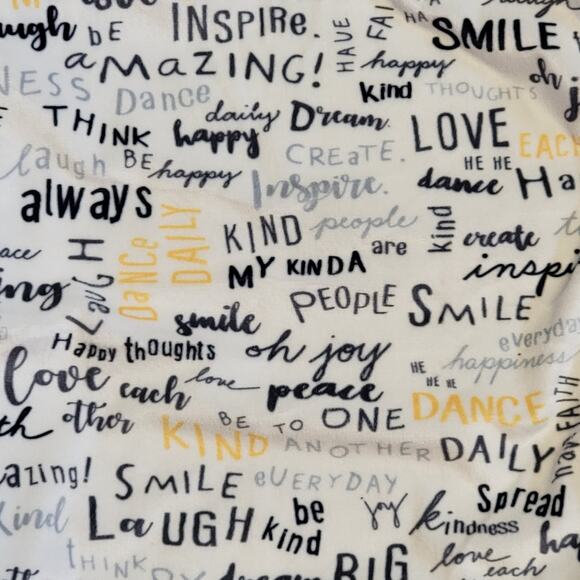 laugh be INSPIRe. HAVE FAITH HA SMILE
aMAZING! happy oh
NESS Dance Kind THOUGHTS
THINK happy daily Dream. LOVE EACH
laugh BE happy CREaTE. HE HE
always Inspire. dance Ha
KIND people are kind create
LaUGH DaNCe DAILY MY KINDA inspi
ing smile PEOPLE SMILE
Happy thoughts oh joy everyday
love each love peace HE happiness
HE HE
other BE TO ONE DANCE FAITH
KIND ANOTHER DAILY
azing! SMILE eVERYDAY Spread
Kind LaUGH be kind joy kindness
THINK dream BIG love each